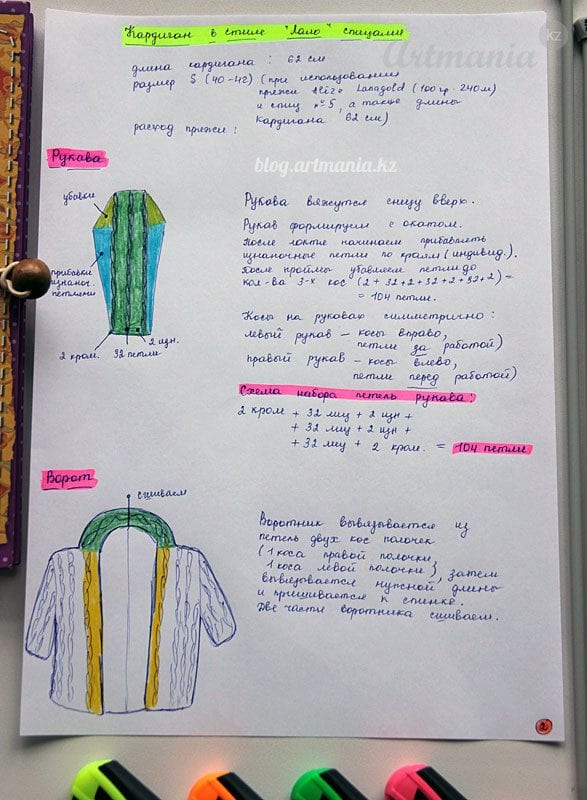 Кардиган в стиле "Лало" спицами
Artmania
kz
длина кардигана : 62 см
размер S (40-42) (при использовании
пряжи Alize Lanagold (100 гр. 240м)
и спиц №5, а также длины
кардигана 62 см)
расход пряжи :
blog.artmania.kz
Рукава
убавки
прибавки
изнаноч.
петлями
2 кром.
32 петли
2 изн.
Рукава вяжутся снизу вверх.
Рукав формируем с окатом.
После локтя начинаем прибавлять
изнаночные петли по краям (индивид.).
После проймы убавляем петли до
кол-ва 3-х кос (2+32+2+32+2+32+2) =
= 104 петли.
Косы на рукавах симметрично :
левый рукав – косы вправо,
петли за работой)
правый рукав – косы влево,
петли перед работой)
Схема набора петель рукава :
2 кром + 32 лиц + 2 изн +
+ 32 лиц + 2 изн +
+ 32 лиц + 2 кром. = 104 петли
Ворот
сшиваем
Воротник вывязывается из
петель двух кос полочек
(1 коса правой полочки,
1 коса левой полочки), затем
вывязывается нужной длины
и пришивается к спинке.
Две части воротника сшиваем.
2